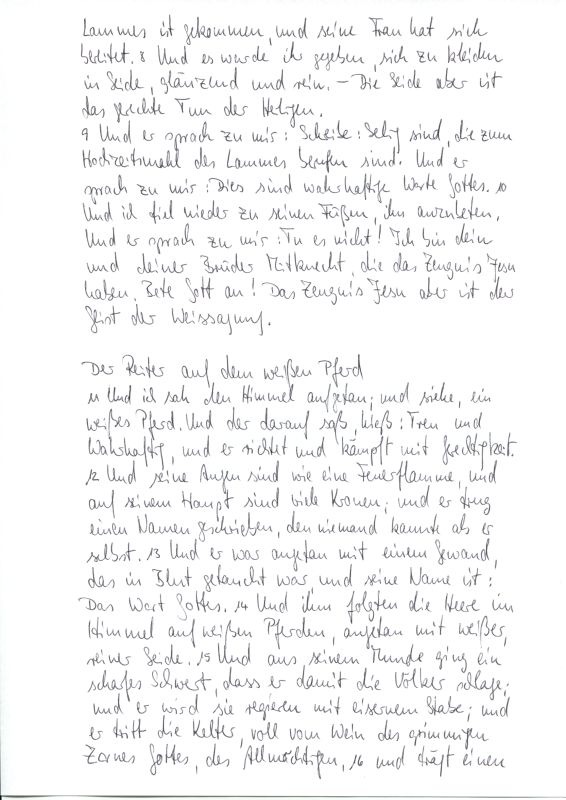 Lammes ist gekommen, und seine Frau hat sich
bereitet. 8 Und es wurde ihr gegeben, sich zu kleiden
in Seide, glänzend und rein. – Die Seide aber ist
das gerechte Tun der Heiligen.
9 Und er sprach zu mir: Schreibe: Selig sind, die zum
Hochzeitsmahl des Lammes berufen sind. Und er
sprach zu mir: Dies sind wahrhaftige Worte Gottes. 10
Und ich fiel nieder zu seinen Füßen, ihn anzubeten.
Und er sprach zu mir: Tu es nicht! Ich bin dein
und deiner Brüder Mitknecht, die das Zeugnis Jesu
haben. Bete Gott an! Das Zeugnis Jesu aber ist der
Geist der Weissagung.
Der Reiter auf dem weißen Pferd
11 Und ich sah den Himmel aufgetan; und siehe, ein
weißes Pferd. Und der darauf saß, hieß: Treu und
Wahrhaftig, und er richtet und kämpft mit Gerechtigkeit.
12 Und seine Augen sind wie eine Feuerflamme, und
auf seinem Haupt sind viele Kronen; und er trug
einen Namen geschrieben, den niemand kannte als er
selbst. 13 Und er war angetan mit einem Gewand,
das in Blut getaucht war, und seine Name ist:
Das Wort Gottes. 14 Und ihm folgten die Heere im
Himmel auf weißen Pferden, angetan mit weißer,
reiner Seide. 15 Und aus seinem Munde ging ein
scharfes Schwert, dass er damit die Völker schlage;
und er wird sie regieren mit eisernem Stabe; und
er tritt die Kelter, voll vom Wein des grimmigen
Zornes Gottes, des Allmächtigen, 16 und trägt einen